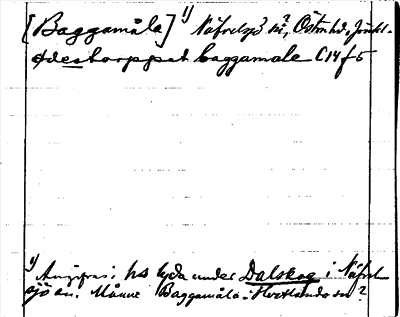 [Baggamåla] 1) Näfvelsjö sn?, Östra hd, Jönk.
ødestorppet baggamale C14 f 5
1) Angifves: hs lyda under Dalskog i Näfvel
sjö sn. Månne Baggamåla i Hvetlanda sn?